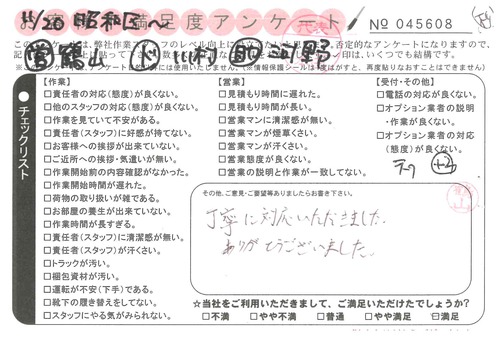 11/20 昭和区へ
お客様満足度アンケート
No 045608
このアンケートは、弊社作業スタッフのレベル向上に
否定的なアンケートになりますので、
いくつでも結構です。
※このアンケートは
作業时には使用いたしません。(※情報保護シールは一度はがすと、再度貼りなおすことはできません)
営 横山 ド 川村 助 河野
チェックリスト
【作業】
□責任者の対応(態度)が良くない。
□他のスタッフの対応(態度)が良くない。
□作業を見ていて不安がある。
□責任者(スタッフ)に好感が持てない。
□お客様への挨拶が出来ていない。
□ご近所への挨拶・気遣いが無い。
□作業開始前の内容確認がなかった。
□作業開始時間が遅れた。
□荷物の取り扱いが雑である。
□お部屋の養生が出来ていない。
□作業時間が長すぎる。
□責任者(スタッフ)に清潔感が無い。
□責任者(スタッフ)が汗くさい。
□トラックが汚い。
□梱包資材が汚い。
□運転が不安(下手)である。
□靴下の履き替えをしてない。
□スタッフにやる気がみられない。
【営業】
□見積もり時間に遅れた。
□見積もり時間が長い。
□営業マンに清潔感が無い。
□営業マンが煙草くさい。
□営業マンが汗くさい。
□営業態度が良くない。
□営業の説明と作業が一致してない。
【受付・その他】
□電話の対応が良くない。
□オプション業者の説明
・作業が良くない。
□オプション業者の対応
(態度)が良くない。
その他、ご意見・ご要望等ありましたらお書き下さい。
丁寧に対応いただきました。
ありがとうございました。
☆当社をご利用いただきまして、ご満足いただけたでしょうか?
□不満 □やや不満 □普通 □やや満足 ☑満足